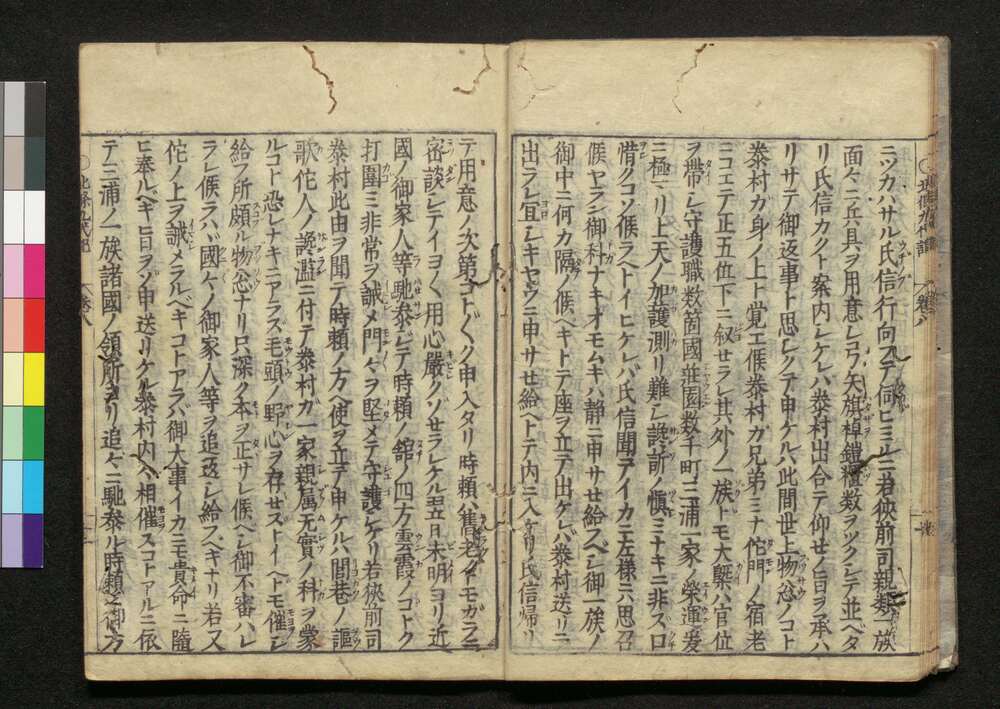 ニツカハサル氏信行向フテ伺ヒミルニ若狹前司親類一族
面々ニ兵具ヲ用意シコワ矢旗棹鎧櫃数ヲツクシテ並ベタ
リ氏信カクト案内シケレハ泰村出合テ仰セノ旨ヲ承ハ
リサテ御返事ト思シクテ申ケルハ此間世上物忩ノコト
泰村カ身ノ上ト覚エ候泰村カ兄弟ミナ佗門ノ宿老
ニコエテ正五位下ニ叙セラレ其外ノ一族トモ大槩ハ官位
ヲ帶シ守護職数箇國莊園数千町三浦一家ノ榮運爰
ニ極マリ上天ノ加護測リ難シ讒訴ノ愼ミナキニ非スロ
惜クコソ候ラヘトイヒケレバ氏信聞テイカニ左様ニ思召
候ヤラン御村ナキオモムキハ靜ニ申サセ給スベシ御一族ノ
御中ニ何カ隔ノ候ヘキトテ座ヲ立テ出ケレバ泰村送リニ
出ラレ宜シキヤウニ申サセ給ヘトテ内ニ入ケリ氏信帰リ
テ用意ノ次第コトゴトク申入タリ時頼ハ舊老イモガラニ
密談シテイヨイヨ用心嚴クソゼラレケル翌日未明ヨリ近
國ノ御家人等馳参シテ時頼ノ舘ノ四方雲霞ノコトク
打圍ミ非常ヲ誡メ門々ヲ堅メテ守護シケリ若狹前司
泰村此由ヲ聞テ時頼ノ方ヘ使ヲ立テ申ケルハ閭巷ノ謳
歌佗人ノ讒濫ニ付テ泰村ガ一家親属无實ノ科ヲ蒙
ルコト恐レナキニアラス毛頭ノ野心ヲ存セズトイヘトモ催シ
給フ所頗ル物忩ナリ只深ク本ヲ正サレ候ヘシ御不審ハレ
ラレ候ラハバ國々ノ御家人等ヲ追返シ給スベキナリ若又
佗ノ上ヲ誡メラルベキコトアラバ御大事イカニモ貴命ニ隨
ヒ奉ルベキ旨ヲゾ申送リケル泰村内ヘ相催スコトアルニ依
テ三浦ノ一族諸國ノ領所ヨリ追々ニ馳参ル時頼之御方